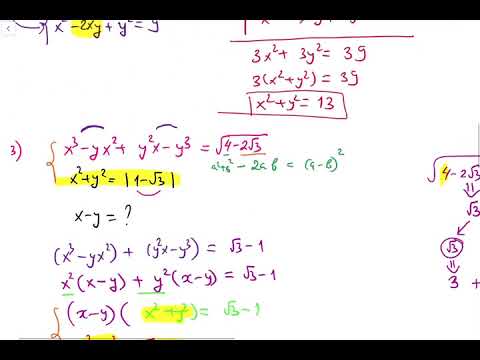 x² - 2xy + y² = 9
3x² + 3y² = 39
3(x² + y²) = 39
x² + y² = 13
3)
x³ - yx² + y²x - y³ = √(4 - 2√3)
a² + b² - 2ab = (a - b)²
x² + y² = |1 - √3|
x - y = ?
(x³ - yx²) + (y²x - y³) = √3 - 1
x²(x - y) + y²(x - y) = √3 - 1
(x - y)(x² + y²) = √3 - 1
√(4 - 2√3
√3
√3
3 +